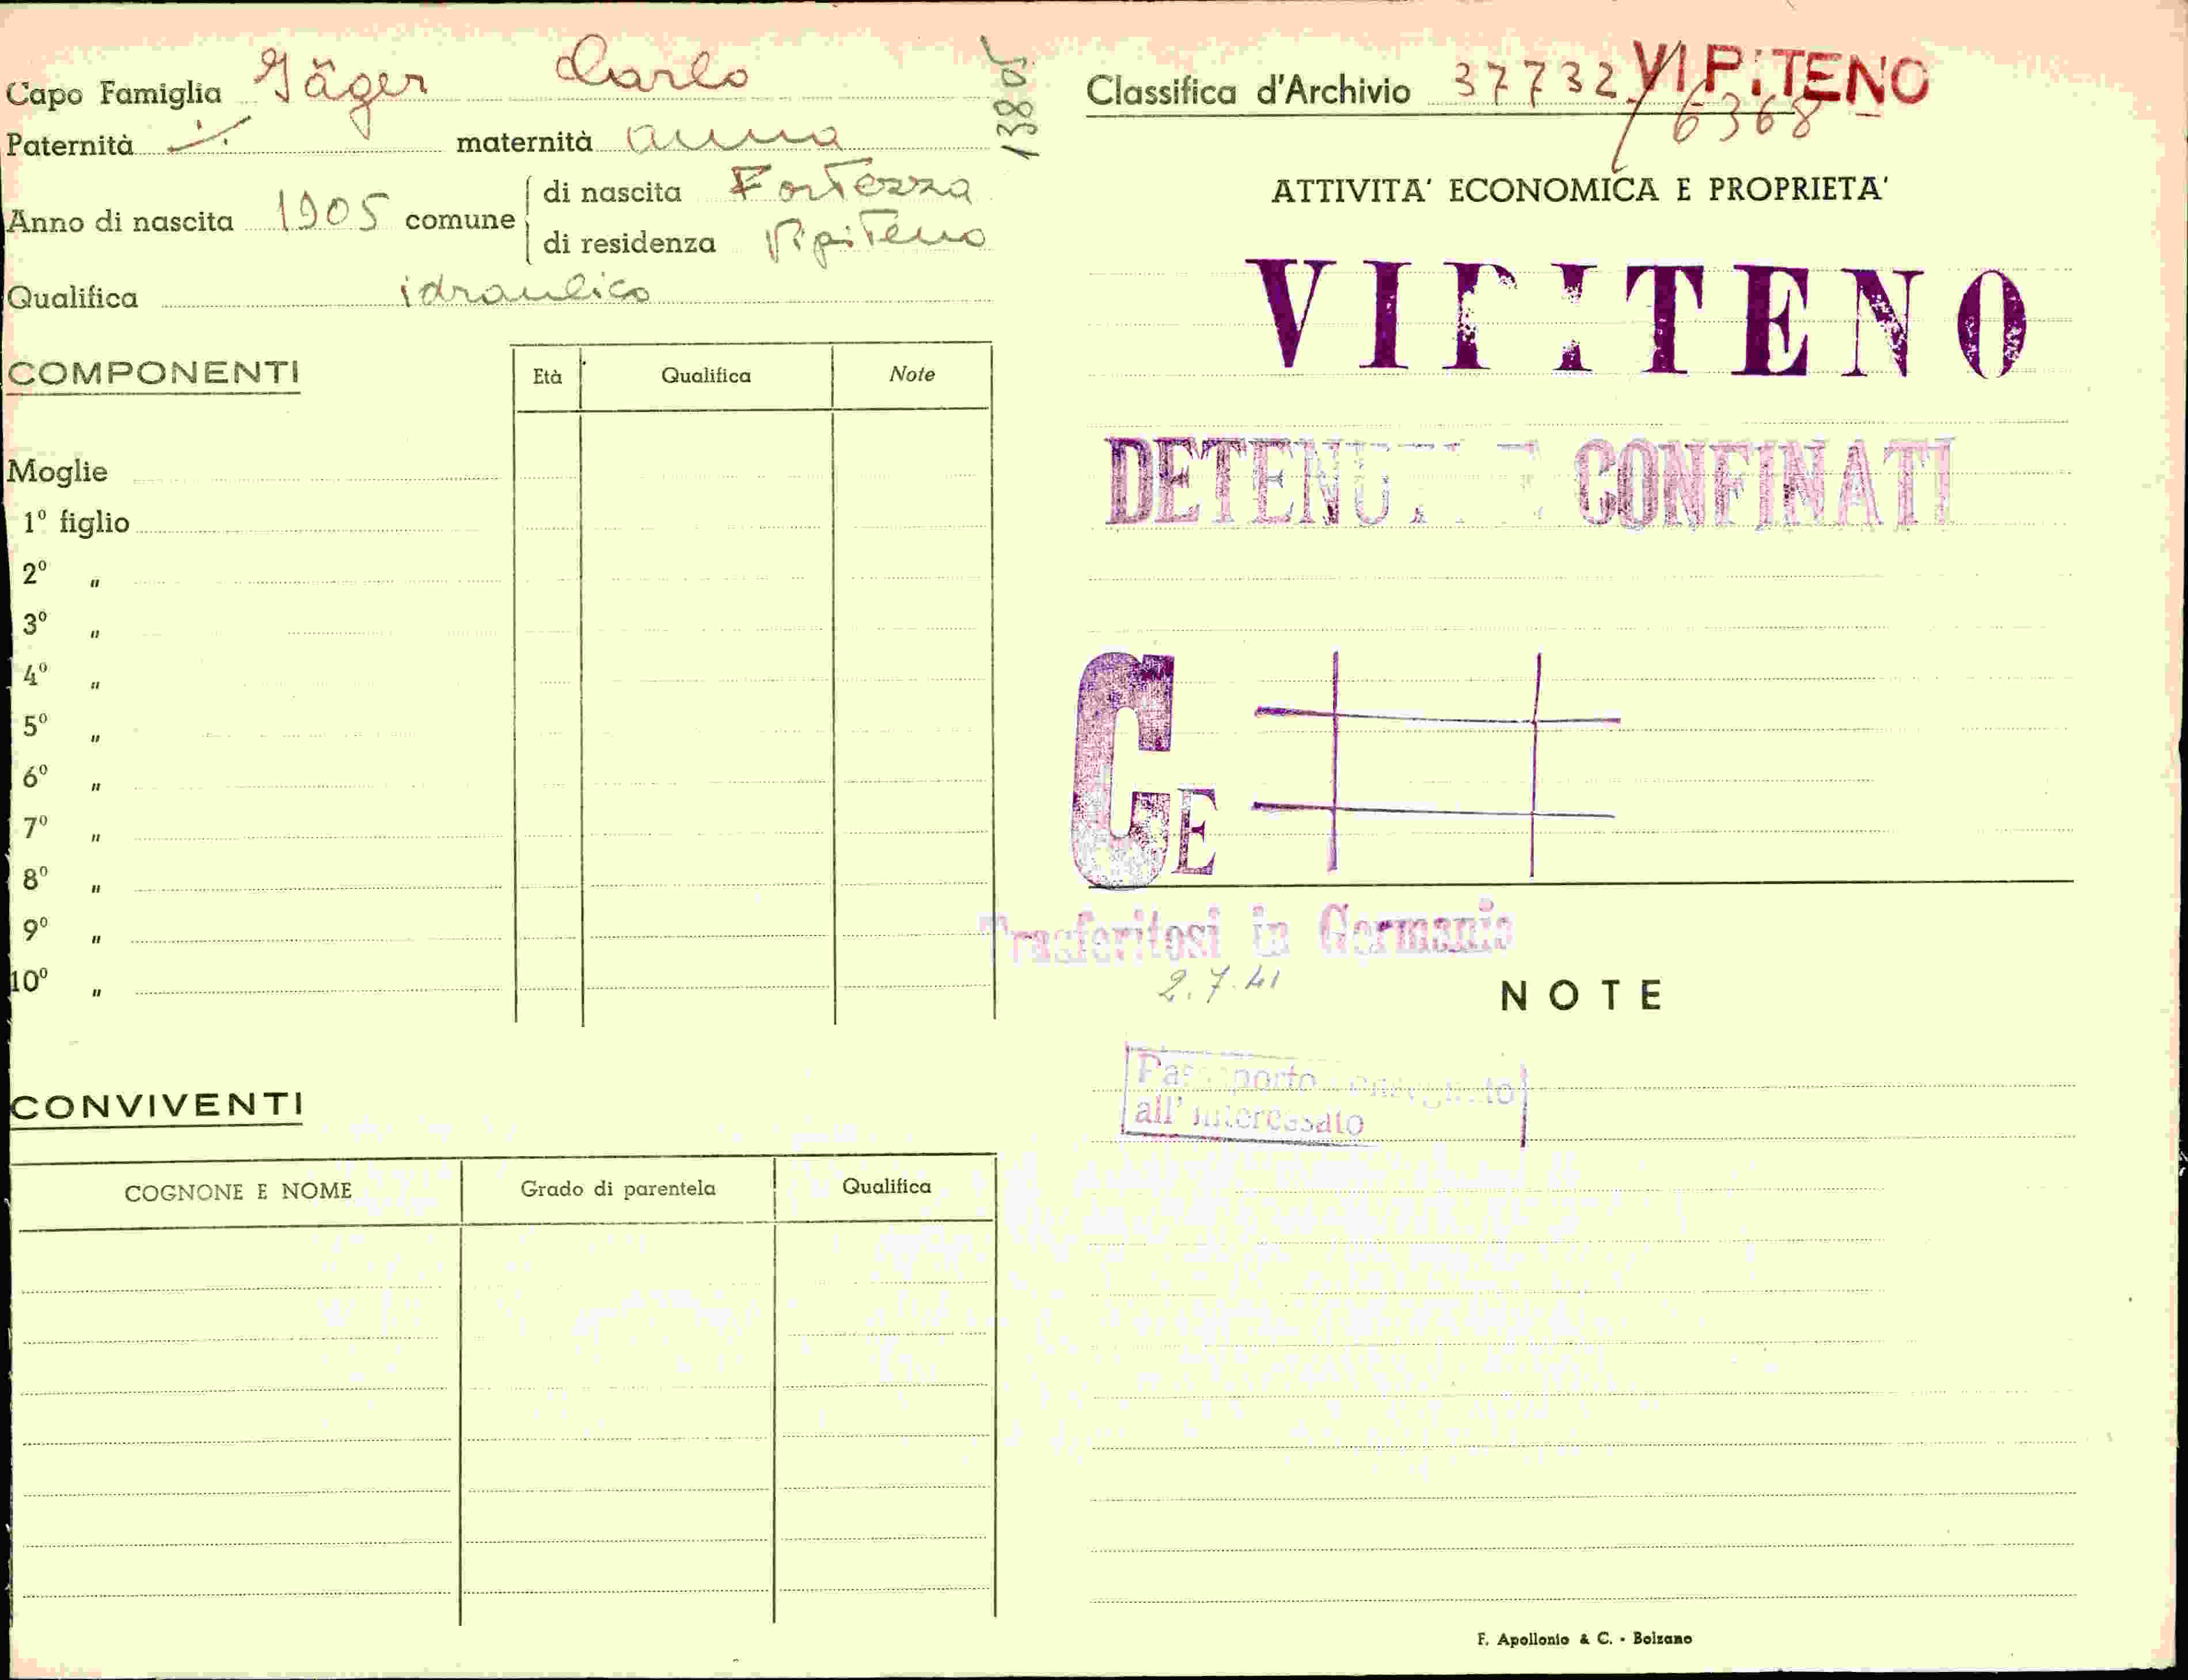 Capo Famiglia Jäger Carlo
Paternità ·/. maternità anna
Anno di nascita 1905 comune
di nascita Fortezza
di residenza Vipiteno
Qualifica idraulico
COMPONENTI Età Qualifica Note
Moglie
1º figlio
2º "
3º "
4º "
5º "
6º "
7º "
8º "
9º "
10º "
CONVIVENTI
COGNONE E NOME Grado di parentela Qualifica
Classifica d'Archivio 37732/6368
VIPiTENO
ATTIVITA' ECONOMICA E PROPRIETA'
VIPITENO
DETENUTI E CONFINATI
CE
Trasferitosi in Germania
2.7.41
NOTE
Passaporto consegnato
all'interessato
F. Apollonio & C. - Bolzano